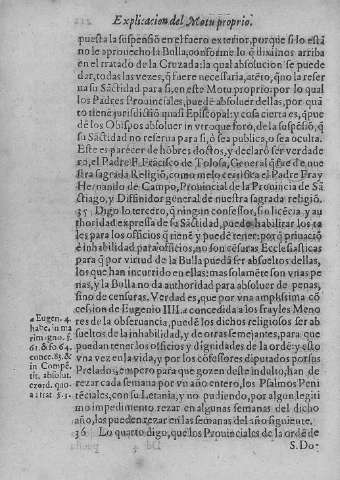 Explicacion del Motu proprio.
puesta la suspēsiō en el fuero exterior, porque si lo está
no le aprouecho la Bulla, conforme lo q̃ diximos arriba
en el tratado de la Cruzada: la qual absolucion se puede
dar, todas las vezes, q̃ fuere necessaria, atēto, q̃no la reser
na su Sāctidad para si, en este Motu proprio: por lo qual
los Padres Prouinciales, puedē absoluer dellas, por quā
to tienē jurisdiciō quasi Episcopal: y cosa cierta es, q̃pue
dē los Obispos absoluer in vtroque foro, de la suspēsiō, q̃
su Sāctidad no reserua para si, ò sea publica, o sea oculta.
Este es parecer de hōbres doctos, y declarò ser verdade
ro, el Padre F. Frācisco de Tolosa, General q̃ fue de nue
stra sagrada Religiō, como me lo certifica el Padre Fray
Hernando de Campo, Prouincial de la Prouincia de Sā
ctiago, y Diffinidor general de nuestra sagrada religiō.
35 Digo lo tercero, q̃ ningun confessor, sin licēcia, y au
thoridad expressa de su Sāctidad, puedo habilitar los ta
les para los officios q̃ tienē y puedē tener: porq̃ priuaciō
è inhabilidad para officios, no son cēsuras Ecclesiasticas
para q̃ por virtud de la Bulla puedā ser absueltos dellas,
los que han incurrido en ellas: mas solamēte son vnas pe
nas, y la Bulla no da authoridad para absoluer de penas,
sino de censuras. Verdad es, que por vna amplissima cō
cession de Eugenio IIII. a concedida a los frayles Meno
res de la obseruancia, puedē los dichos religiosos ser ab
sueltos de la inhabilidad, y de otras semejantes, para que
puedan tener los officios y dignidades de la ordē: y esto
vna vez en la vida, y por los cōfessores diputados por sus
Prelados, empero para que gozen deste indulto, han de
rezar cada semana por vn año entero, los Psalmos Peni
tēciales, con su Letania, y no pudiendo, por algun legiti
mo impedimento rezar en algunas semanas del dicho
año, las pueden rezar en las semanas del año siguiente.
36 Lo quarto digo, que los Prouinciales de la ordē de
S. Do-
a Eugen. 4.
habe. in ma
rim gno. f.
61. & fo 64.
conce. 83. &
in Compē.
tit. absolut.
q. ord. quo-
ad stat. §. 3.